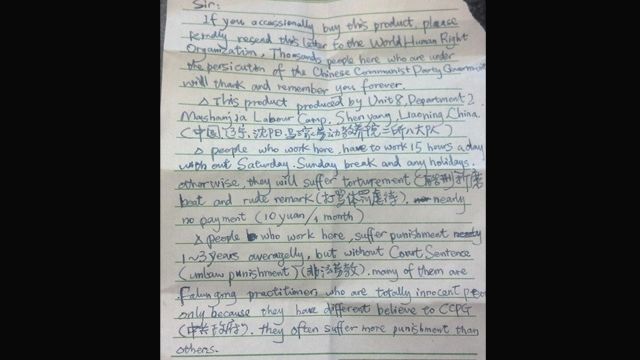 Sir:
If you occassionally buy this product, please
kindly resend this letter to the World Human Right
Organization. Thousands people here who are under
the persicution of the Chinese Communist Party Government
will thank and remember you forever.
△ This product produced by Unit 8, Department 2,
Mashanjia Labour Camp, Shenyang, Liaoning, China.
(中国 辽宁, 沈阳
△ people who work here, have to work 15 hours a day
with out Saturday, Sunday break and any holidays,
otherwise, they will suffer torturement
beat and rude remark (打骂体罚虐待), nearly
no payment (10 yuan/1 month)
△ people who work here, suffer punishment
1~3 years averagelly, but without Court Sentence
(unlaw punishment) (非法劳教). many of them are
Falun gong practitioner, who are totally innocent
only because they have different believe to CCPG
(中共政府). they often suffer more punishment than
others.